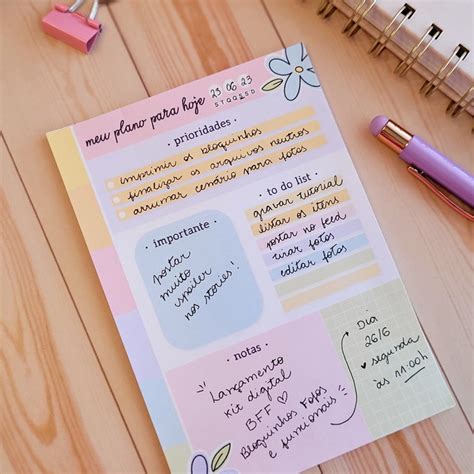 meu plano para hoje
23 06 23
STQQSSD
· prioridades ·
imprimir os bloquinhos
finalizar os arquivos neutros
arrumar cenário para fotos
· to do list ·
gravar tutorial
listar os itens
postar no feed
tirar fotos
editar fotos
· importante ·
postar
muito
spoiler
nos stories!
· notas ·
Lançamento
kit digital
BFF ♡
Bloquinhos Fofos
e funcionais
Dia
26/6
• segunda
às 11:00h